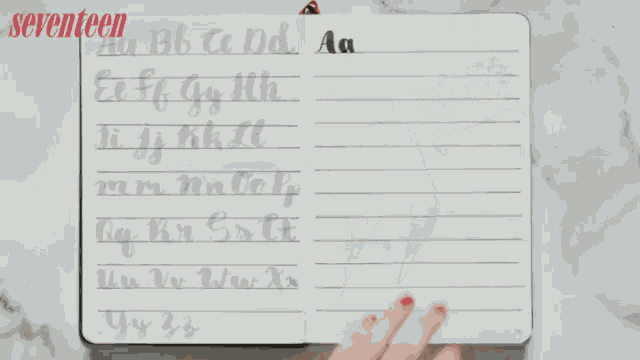 seventeen
Aa Bb Cc Dd
Aa
Ee Ff Gg Hh
Ii Jj Kk Ll
Mm Nn Oo Pp
Qq Rr Ss Tt
Uu Vv Ww Xx
Yy Zz